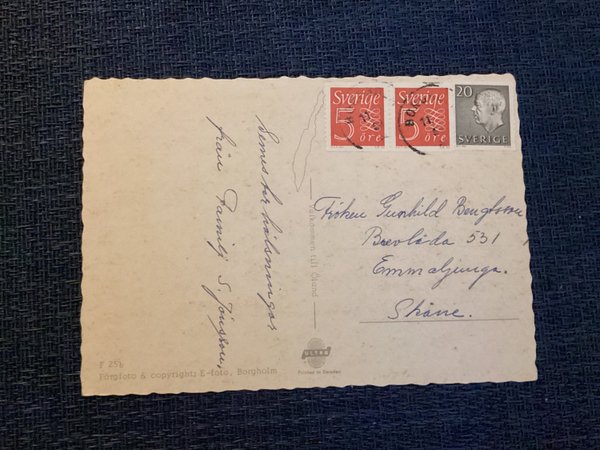 Sverige
5
öre
Sverige
5
öre
20
SVERIGE
Semesterhälsningar
från Familj S. Jönsson,
Fröken Gunhild Bengtsson
Brevlåda 531
Emmaljunga.
Skåne.
Välkommen till Öland
ULTRA
Printed in Sweden
F 256
Färgfoto & copyright: E-foto, Borgholm